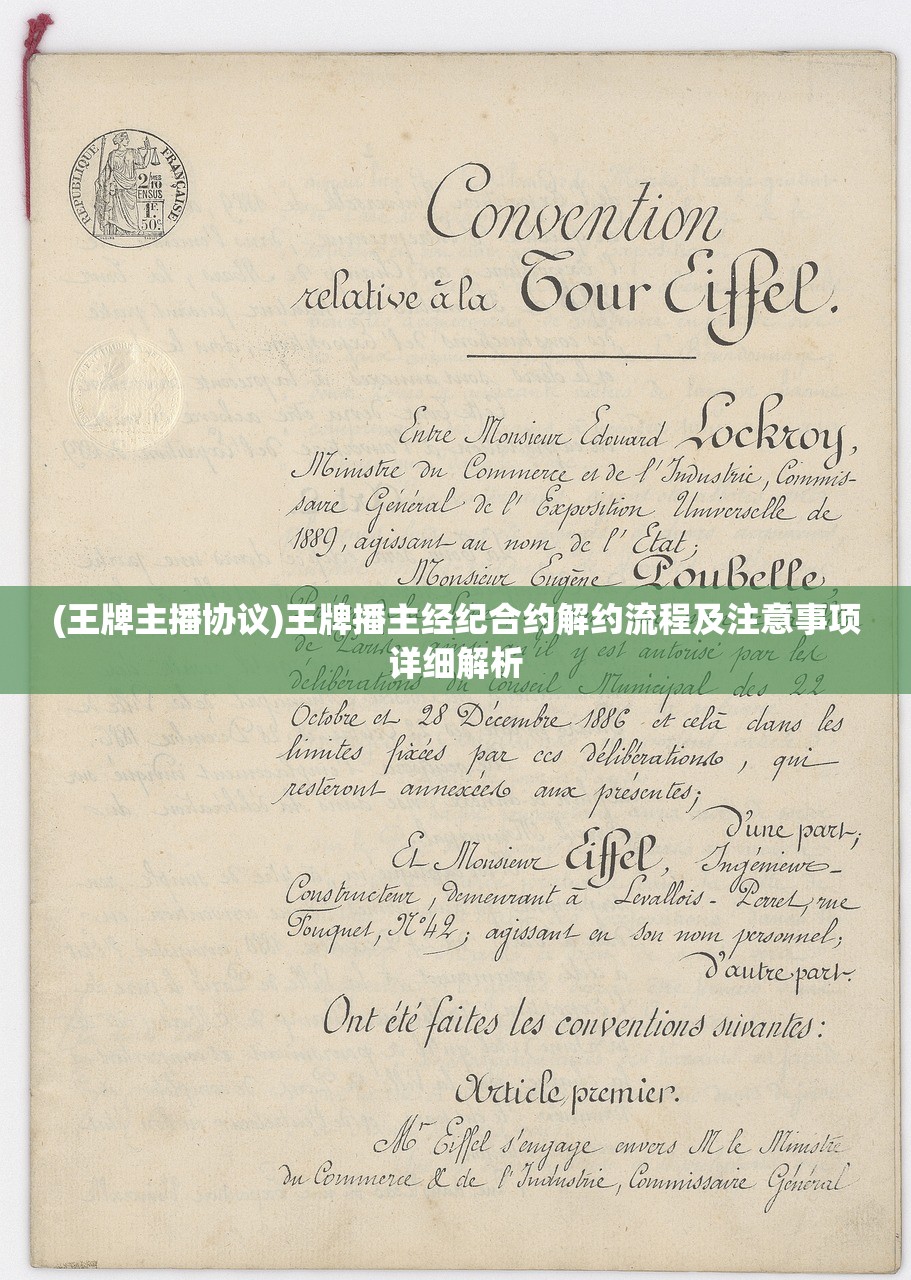 RÉPUBLIQUE FRANÇAISE
2/10
EN SUS
1F
50c
Convention
relative à la Tour Eiffel.
Entre Monsieur Edouard Lockroy,
Ministre du Commerce et de l'Industrie, Commis-
saire Général de l'Exposition Universelle de
1889, agissant au nom de l'Etat;
Monsieur Eugène Poubelle,
(王牌主播协议)王牌播主经纪合约解约流程及注意事项
详细解析
de Paris, ainsi qu'il y est autorisé par les
délibérations du Conseil Municipal des 22
Octobre et 28 Décembre 1886 et celà dans les
limites fixées par ces délibérations, qui
resteront annexées aux présentes;
d'une part;
Et Monsieur Eiffel, Ingénieur-
Constructeur, demeurant à Levallois-Perret, rue
Fouquet, N°42; agissant en son nom personnel;
d'autre part.
Ont été faites les conventions suivantes:
Article premier.
Mr Eiffel s'engage envers M le Ministre
du Commerce & de l'Industrie, Commissaire Général